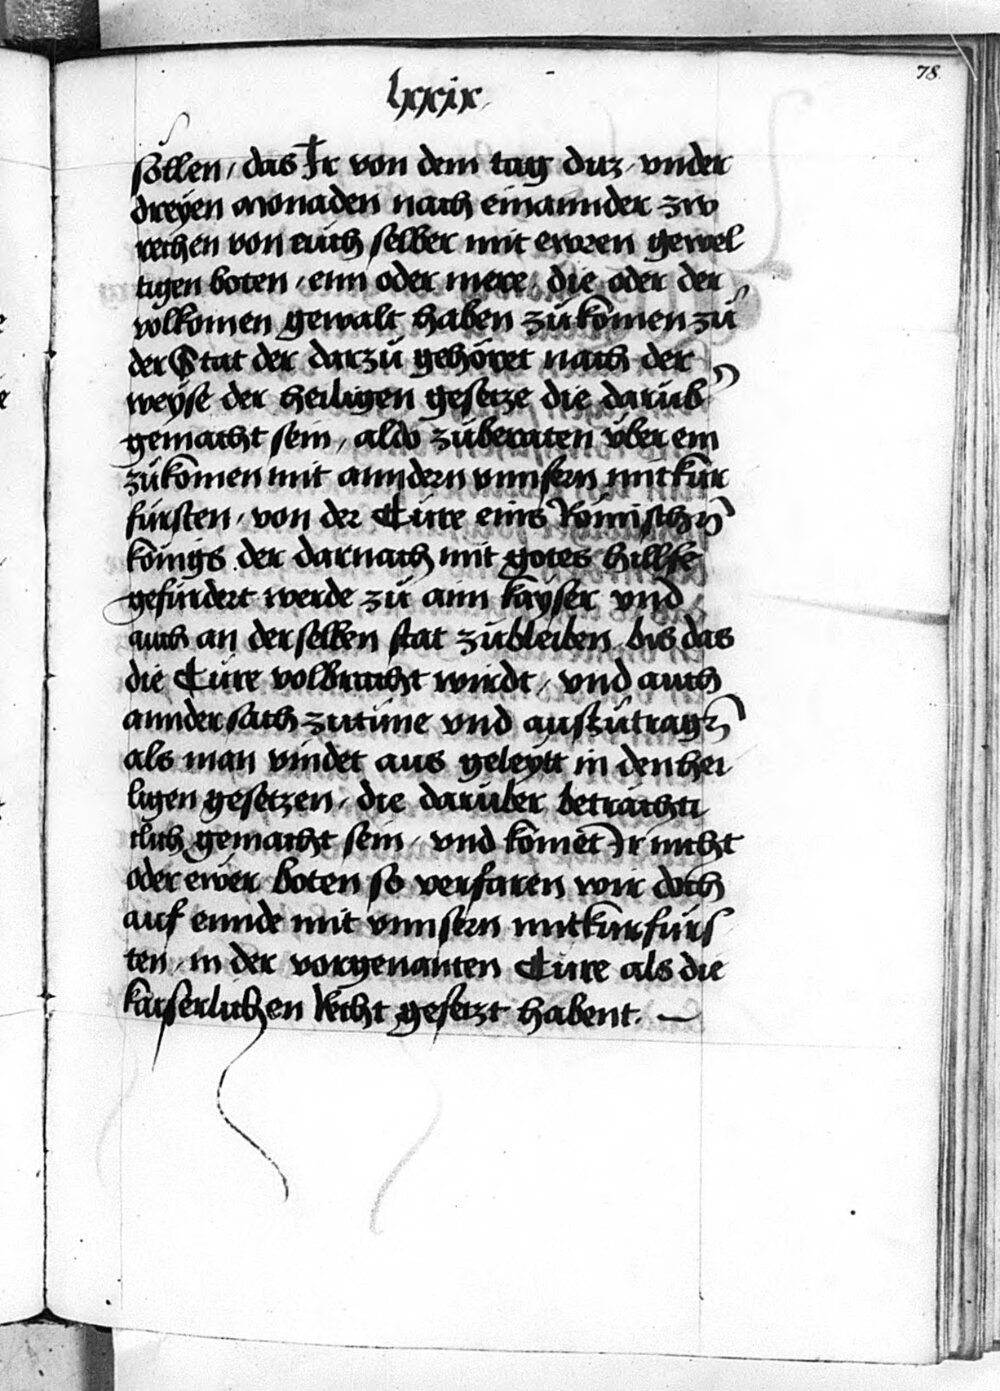 78
lxxix
söllen / das Ir von dem tag duz vnder
dreyen monaden nach einannder zw
rechen von euch selber mit ewren gewel
tigen boten / enn oder mere / die oder der
volkomen gewalt haben zůkomen zů
der Stat der darzů gehöret nach der
weyse der heiligen gesetze die darüb
gemacht sein / aldo zůberaten über ein
zůkomen mit anndern vnnsern mitkur
fürsten / von der Cure eins Römischn
königs der darnach mit gotes hillffe
gefürdert werde zů ainn kayser vnd
auch an derselben stat zůbleiben bis das
die Cure volbracht wirdt / vnd auch
annder sach zutůne vnd auszůtragn
als man vindet aus geleytt in den hei
ligen gesetzen / die darüber betrachti
clich gemacht sein / vnd komet Ir nicht
oder ewer boten so verfaren wir doch
auf ennde mit vnnsern mitkurfürs
ten / in der vorgenanten Cure als die
kaiserlichen Recht gesetzt habent. —